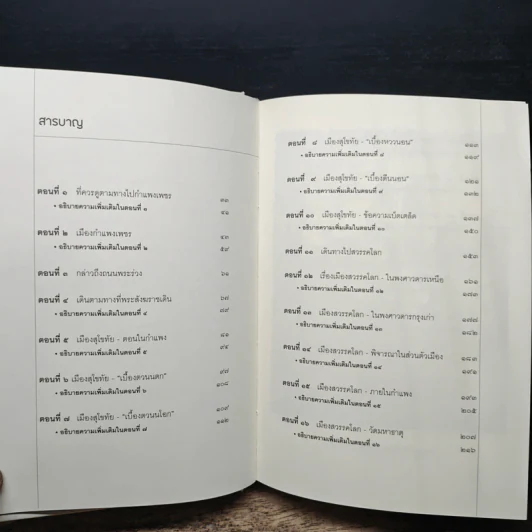 สารบาญ
ตอนที่ ๑ ที่ควรดูตามทางไปกำแพงเพชร ๓๓
• อธิบายความเพิ่มเติมในตอนที่ ๑ ๔๑
ตอนที่ ๒ เมืองกำแพงเพชร ๔๓
• อธิบายความเพิ่มเติมในตอนที่ ๒ ๕๙
ตอนที่ ๓ กล่าวถึงถนนพระร่วง ๖๑
ตอนที่ ๔ เดินตามทางที่พระสังฆราชเดิน ๖๗
• อธิบายความเพิ่มเติมในตอนที่ ๔ ๘๗
ตอนที่ ๕ เมืองสุโขทัย - ตอนในกำแพง
• อธิบายความเพิ่มเติมในตอนที่ ๕
ตอนที่ ๖ เมืองสุโขทัย - "เบื้องตวนนตก" ๙๗
• อธิบายความเพิ่มเติมในตอนที่ ๖ ๑๐๘
ตอนที่ ๗ เมืองสุโขทัย - "เบื้องตวนนโยก" ๑๐๙
• อธิบายความเพิ่มเติมในตอนที่ ๗ ๑๑๒
ตอนที่ ๘ เมืองสุโขทัย - "เบื้องหววนอน" ๑๑๓
• อธิบายความเพิ่มเติมในตอนที่ ๘ ๑๑๙
ตอนที่ ๙ เมืองสุโขทัย - "เบื้องตีนนอน" ๑๒๑
• อธิบายความเพิ่มเติมในตอนที่ ๙ ๑๓๒
ตอนที่ ๑๐ เมืองสุโขทัย - ข้อความเบ็ดเตล็ด ๑๓๗
• อธิบายความเพิ่มเติมในตอนที่ ๑๐ ๑๕๐
ตอนที่ ๑๑ เดินทางไปสวรรคโลก ๑๕๓
ตอนที่ ๑๒ เรื่องเมืองสวรรคโลก - ในพงศาวดารเหนือ ๑๖๑
• อธิบายความเพิ่มเติมในตอนที่ ๑๒ ๑๗๓
ตอนที่ ๑๓ เมืองสวรรคโลก - ในพงศาวดารกรุงเก่า ๑๗๗
• อธิบายความเพิ่มเติมในตอนที่ ๑๓ ๑๘๒
ตอนที่ ๑๔ เมืองสวรรคโลก - พิจารณาในส่วนตัวเมือง ๑๘๓
• อธิบายความเพิ่มเติมในตอนที่ ๑๔ ๑๙๔
ตอนที่ ๑๕ เมืองสวรรคโลก - ภายในกำแพง ๑๙๕
• อธิบายความเพิ่มเติมในตอนที่ ๑๕ ๒๐๕
ตอนที่ ๑๖ เมืองสวรรคโลก - วัดมหาธาตุ ๒๐๗
• อธิบายความเพิ่มเติมในตอนที่ ๑๖ ๒๑๖